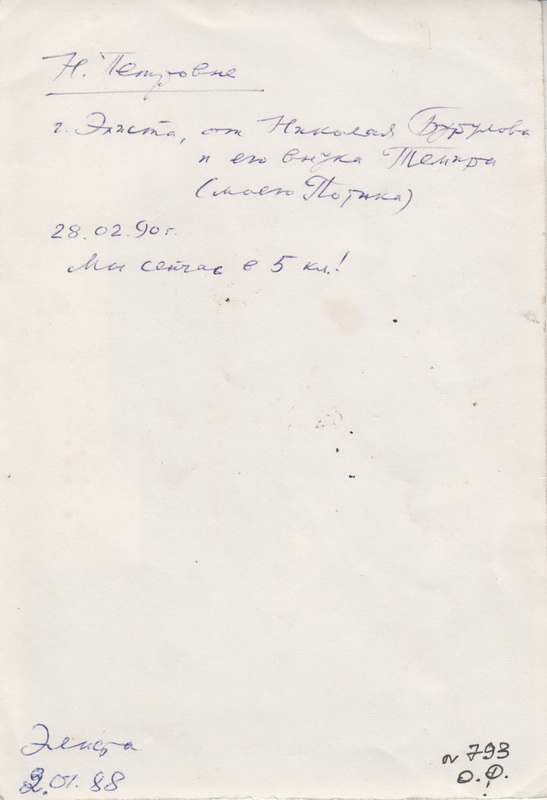 Н. Петровне
г. Элиста, от Николая Бурулова
и его внука Темира
(моего Потика)
28.02.90г.
Мы сейчас в 5 кл.!
Элиста
2.01.88
793
О.Ф.